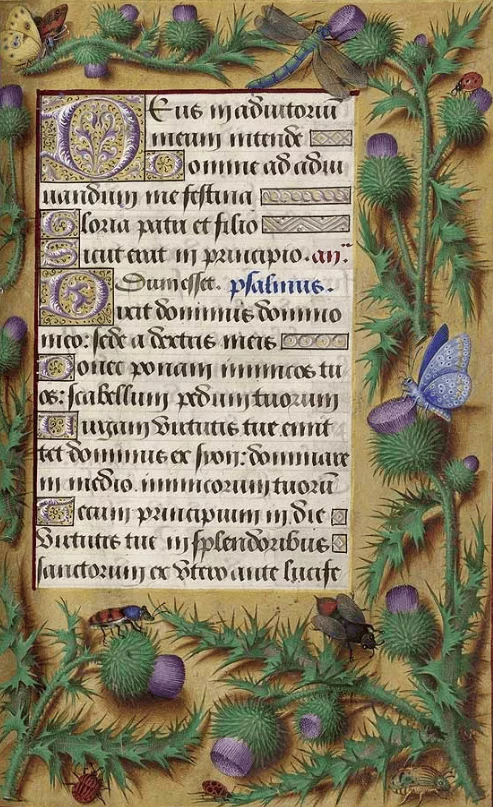 Deus in adiutoriū
meum intende
Domine ad adiu
uandum me festina
Gloria patri et filio
Sicut erat in principio. an̄.
Dum esset. psalmus.
Dixit dominus domino
meo: sede a dextris meis
Donec ponam inimicos tu
os: scabellum pedum tuorum
Uirgam virtutis tue emit
tet dominus ex syon: dominare
in medio inimicorum tuorū
Tecum principium in die
virtutis tue in splendoribus
sanctorum ex vtero ante lucife